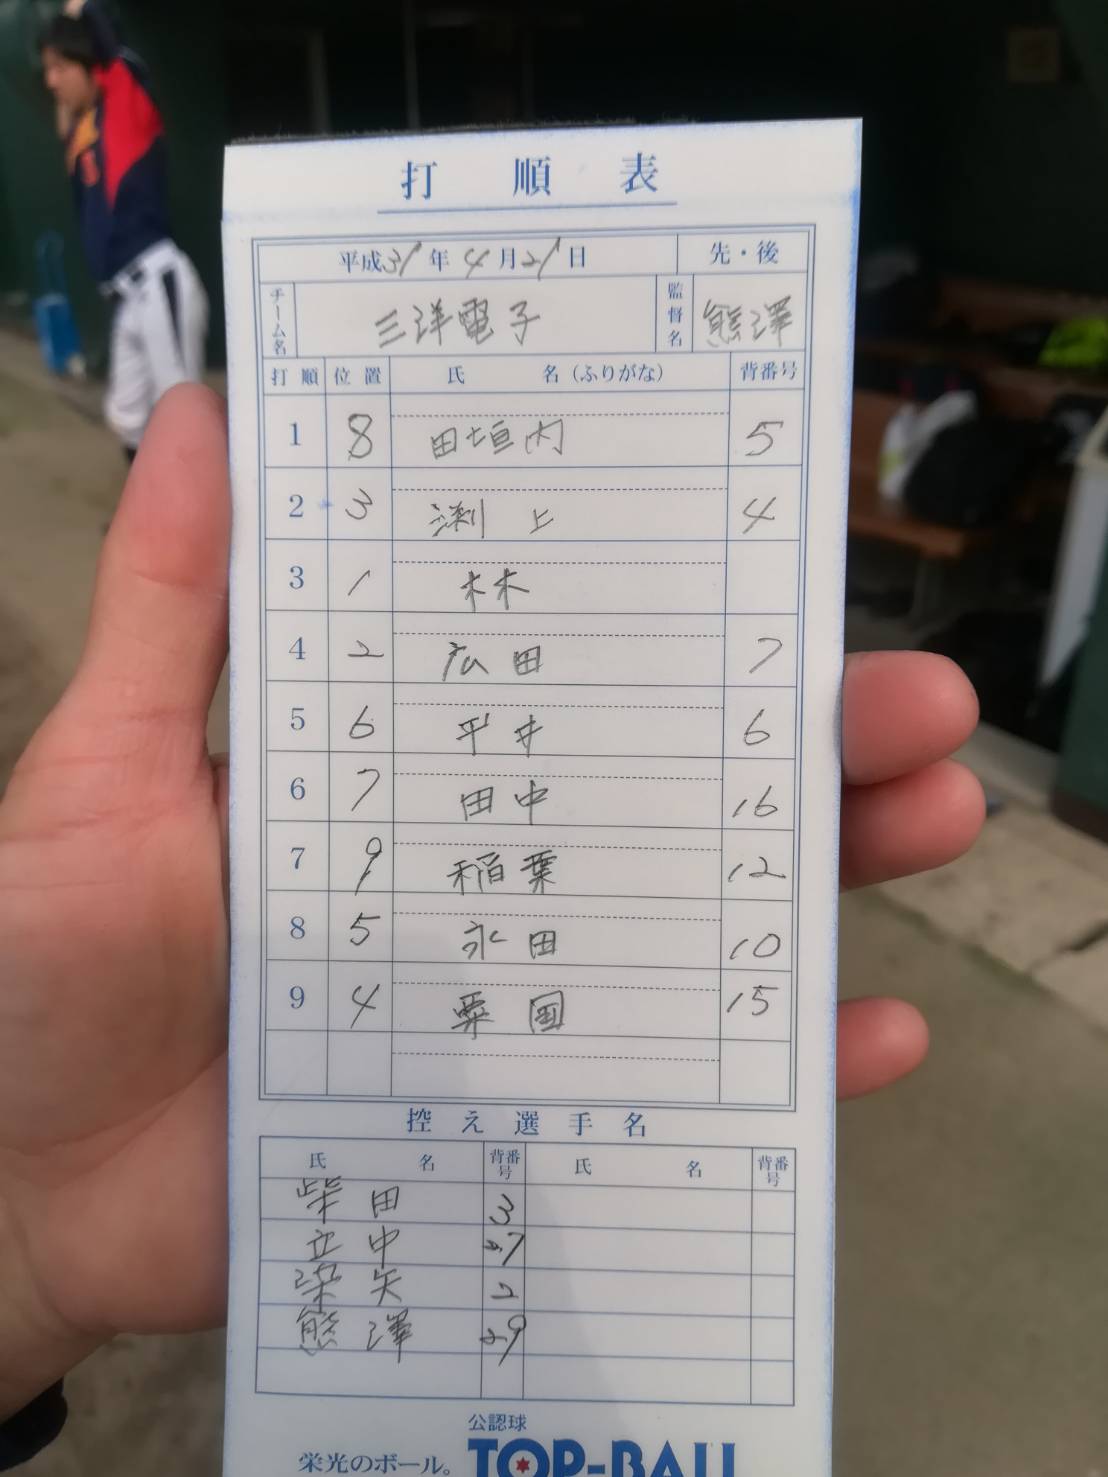 打順表
平成31年4月21日 先・後
チーム名 三洋電子 監督名 熊澤
打順 位置 氏名(ふりがな) 背番号
1 8 田垣内 5
2 3 渕上 4
3 1 林
4 2 広田 7
5 6 平井 6
6 7 田中 16
7 9 稲葉 12
8 5 永田 10
9 4 粟国 15
控え選手名
氏名 背番号 氏名 背番号
柴田 3
立中 27
染矢 2
熊澤 29
公認球
栄光のボール。TOP-BALL